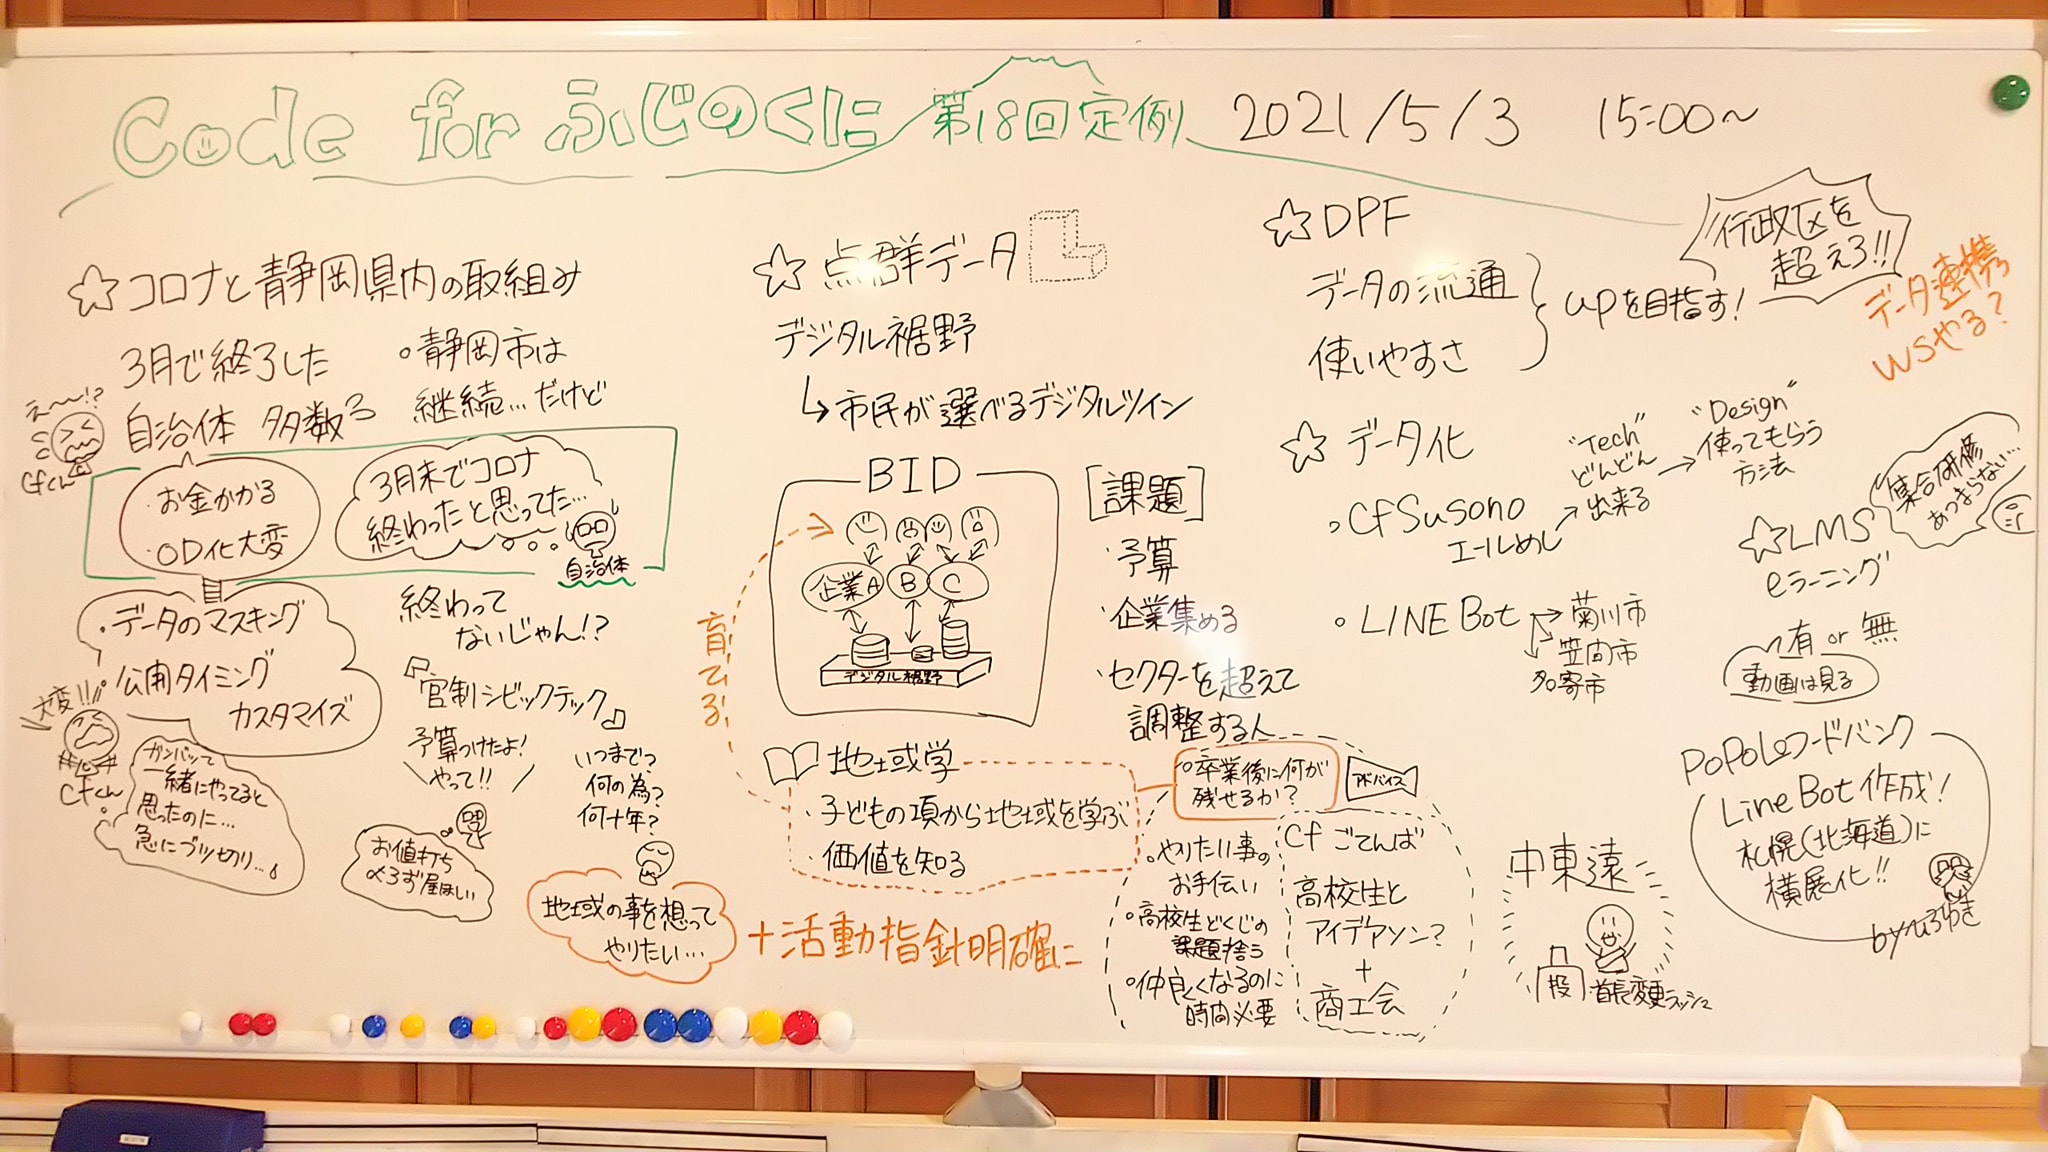 Code for ふじのくに 第18回定例 2021/5/3 15:00~
☆コロナと静岡県内の取組み
3月で終了した
自治体 多数
え~~!?
Cfくん
・静岡市は
継続…だけど
・お金かかる
・OD化大変
3月末でコロナ
終わったと思ってた…
自治体
・データのマスキング
・公開タイミング
カスタマイズ
大変!!
Cfくん
ガンバッて
一緒にやってると
思ったのに…
急にブツ切り…
終わって
ないじゃん!?
『官制シビックテック』
予算つけたよ!
やって!!
お値打ち
〆ろず屋はしい
いつまで?
何の為?
何十年?
地域の事を想って
やりたい…
+活動指針明確に
☆点群データ
デジタル裾野
↳市民が選べるデジタルツイン
BID
企業A B C
デジタル裾野
育てる
[課題]
・予算
・企業集める
・セクターを超えて
調整する人
地域学
・子どもの項から地域を学ぶ
・価値を知る
○卒業後に何が
残せるか?
アドバイス
○やりたい事の
お手伝い
○高校生どくじの
課題拾う
○仲良くなるのに
時間必要
Cf ごてんば
高校生と
アイデアソン?
+
商工会
☆DPF
データの流通
使いやすさ
upを目指す!
行政区を
超えろ!!
データ連携
WSやる?
☆データ化
○CfSusono
エールめし
"Tech"
どんどん
出来る
→
"Design"
使ってもらう
方法
○LINE Bot
→菊川市
笠間市
多寄市
☆LMS
eラーニング
有 or 無
動画は見る
集合研修
あつまらない…
PoPoLoフードバンク
Line Bot作成!
札幌(北海道)に
横展化!!
byひろゆき
中東遠
投
首長変更ラッシュ